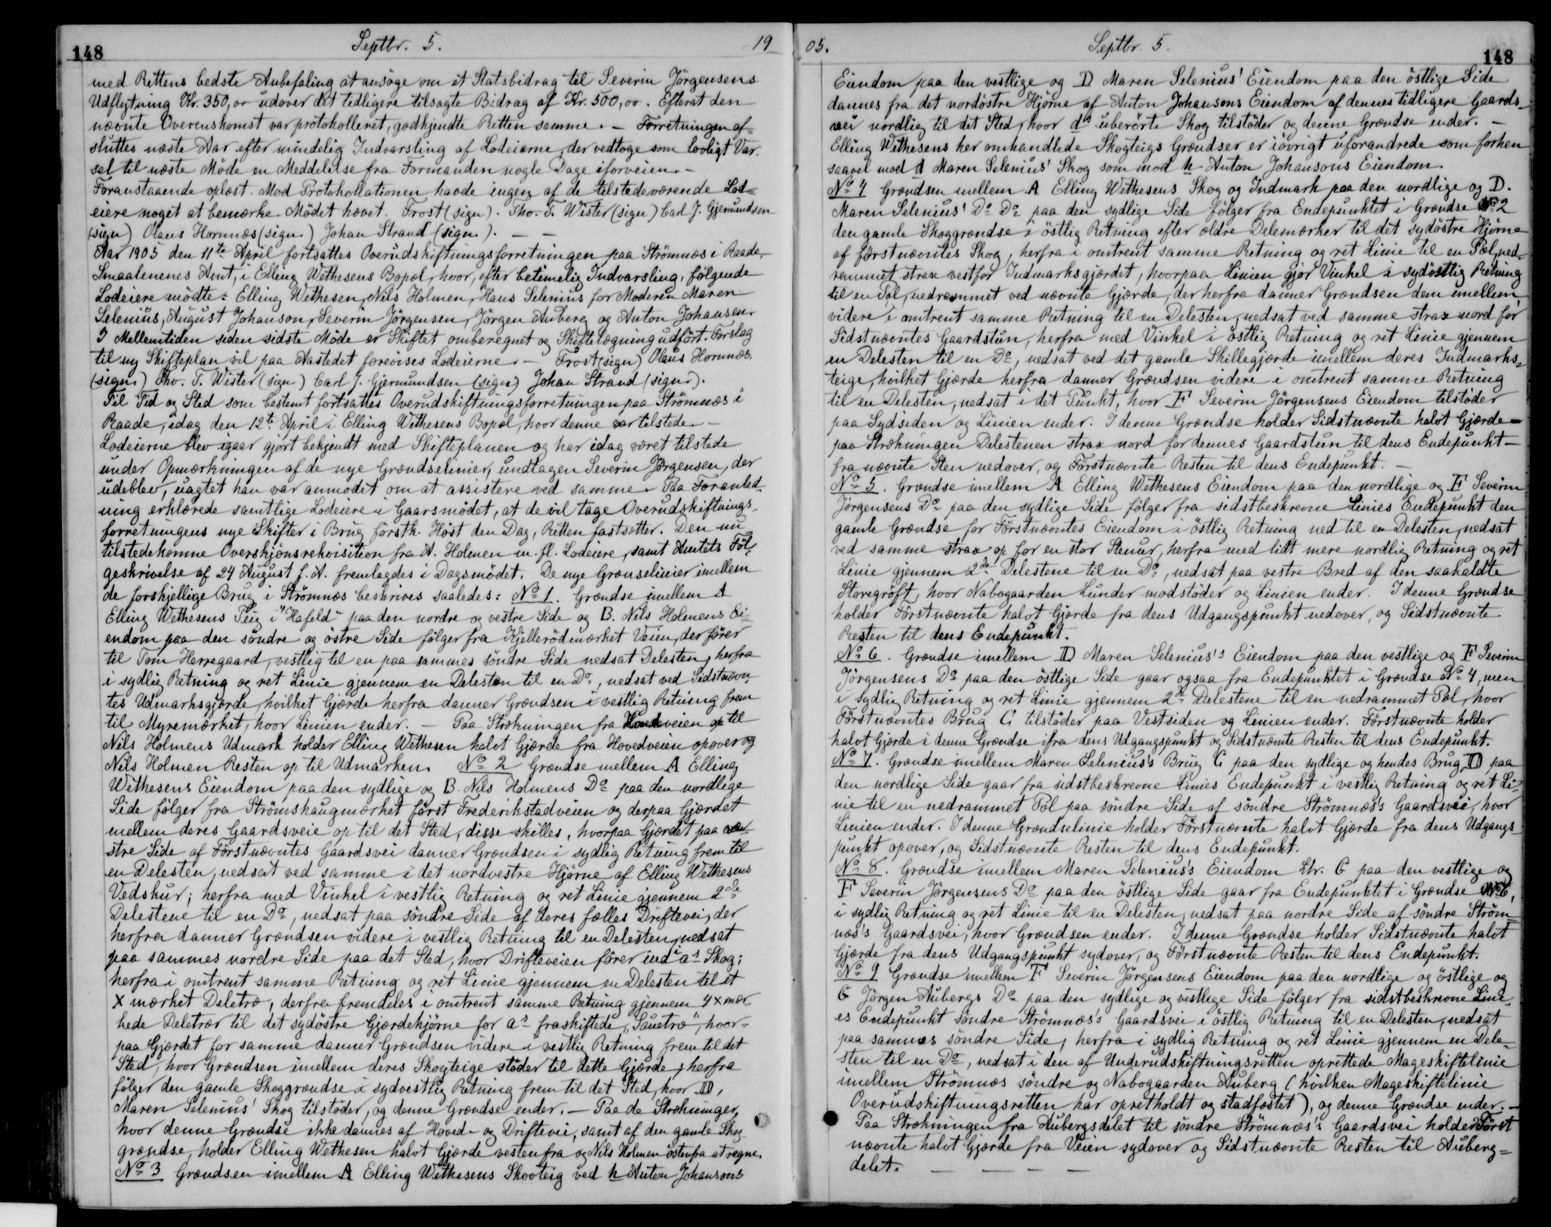 148
Septbr. 5.
19
med Rettens bedste Anbefaling at ansöge om et Statsbidrag til Severin Jörgensens
Udflytning Kr. 350,00 udover det tidligere tilsagte Bidrag af Kr. 500,00. Efterat den
nævnte Overenskomst var protokolleret, godkjendte Retten samme. — Forretningen af-
sluttes næste Aar efter mindelig Indvarsling af Lodeierne, der vedtoge som lovligt Var-
sel til næste Møde en Meddelelse fra Formanden nogle Dage iforveien. —
Foranstaaende oplæst. Mod Protokollationen havde ingen af de tilstedeværende Lod-
eiere noget at bemærke. Mödet hævet. Frost (sign). Tho. T. Wister (sign) Carl J. Gjermundsen
(sign) Olaus Hornnæs (sign) Johan Strand (sign). — —
Aar 1905 den 11te April fortsattes Overudskiftningsforretningen paa Strömnæs i Raade,
Smaalenenes Amt, i Elling Wethesens Bopæl, hvor, efter betimelig Indvarsling, fölgende
Lodeiere mödte: Elling Wethesen, Nils Holmen, Hans Selenius for Moderen Maren
Selenius, August Johanson, Severin Jörgensen, Jörgen Auberg og Anton Johansen.
I Mellemtiden siden sidste Möde er Skiftet omberegnet og Skiftelægning udfört. Forslag
til ny Skifteplan vil paa Aastedet forevises Lodeierne. — Frost (sign) Olaus Hornnæs
(sign) Tho. T. Wister (sign) Carl J. Gjermundsen (sign) Johan Strand (sign).
Til Tid og Sted som bestemt fortsattes Overudskiftningsforretningen paa Strömnæs i
Raade, idag den 12te April i Elling Wethesens Bopæl, hvor denne var tilstede. —
Lodeierne blev igaar gjort bekjendt med Skifteplanen og har idag været tilstede
under Opmærkningen af de nye Grændselinier, undtagen Severin Jörgensen, der
udeblev, uagtet han var anmodet om at assistere ved samme. Paa Foranled-
ning erklærede samtlige Lodeiere i Gaarsmödet, at de vil tage Overudskiftnings-
forretningens nye Skifter i Brug förstk. Höst den Dag, Retten fastsætter. Den nu
tilstedekomne Overskjönsrekvisition fra N. Holmen m. fl. Lodeiere, samt Amtets Föl-
geskrivelse af 24 August f. A. fremlagdes i Dagsmödet. De nye Grænselinier imellem
de forskjellige Brug i Strömnæs beskrives saaledes: No 1. Grændse imellem A
Elling Wethesens Teig i "Hafeld" paa den nordre og vestre Side og B. Nils Holmens Ei-
endom paa den söndre og östre Side fölger fra Kjellerödmærket Veien, der förer
til Tom Herregaard, vestlig til en paa sammes söndre Side nedsat Delesten, herfra
i sydlig Retning og ret Linie gjennem en Delesten til en Do, nedsat ved Sidstnævn
tes Udmarksgjærde, hvilket Gjærde herfra danner Grændsen i vestlig Retning frem
til Myremærket, hvor Linien ender. — Paa Strækningen fra Hovedveien op til
Nils Holmens Udmark holder Elling Wethesen halvt Gjærde fra Hovedveien opover og
Nils Holmen Resten op til Udmarken. No 2 Grændse mellem A Elling
Wethesens Eiendom paa den sydlige og B. Nils Holmens Do paa den nordlige
Side fölger fra Strömshaugmærket först Frederikstadveien og derpaa Gjærdet
mellem deres Gaardsveie op til det Sted, disse skilles, hvorpaa Gjærdet paa ve-
stre Side af Förstnævntes Gaardsvei danner Grændsen i sydlig Retning frem til
en Delesten, nedsat ved samme i det nordvestre Hjörne af Elling Wethesens
Vedskur; herfra med Vinkel i vestlig Retning og ret Linie gjennem 2de
Delestene til en Do, nedsat paa söndre Side af deres fælles Driftevei, der
herfra danner Grændsen videre i vestlig Retning til en Delesten, nedsat
paa sammes nordre Side paa det Sted, hvor Drifteveien förer ind i as Skog;
herfra i omtrent samme Retning og ret Linie gjennem en Delesten til et
X mærket Deletræ, derfra fremdeles i omtrent samme Retning gjennem 4 X mær-
kede Deletræer til det sydöstre Gjærdehjörne for as fraskiftede "Saustræ", hvor-
paa Gjærdet for samme danner Grændsen videre i vestlig Retning frem til det
Sted, hvor Grændsen imellem deres Skogteige stöder til dette Gjærde, herfra
fölger den gamle Skoggrændse i sydvestlig Retning frem til det Sted, hvor D,
Maren Selenius' Skog tilstöder, og denne Grændse ender. — Paa de Strækninger,
hvor denne Grændse ikke dannes af Hoved- og Driftevei, samt af den gamle Skog-
grændse, holder Elling Wethesen halvt Gjærde vestenfra og Nils Holmen östenfra at regne.
No 3 Grændsen imellem A Elling Wethesens Skogteig ved h Anton Johansons
05.
Septbr. 5.
148
Eiendom paa den vestlige og D Maren Selenius' Eiendom paa den östlige Side
dannes fra det nordöstre Hjörne af Anton Johansons Eiendom af dennes tidligere Gaards-
vei nordlig til det Sted, hvor ds uberörte Skog tilstöder og denne Grændse ender. —
Elling Wethesens her omhandlede Skogteigs Grændser er iövrigt uforandrede som forhen
saavel mod d Maren Selenius' Skog som mod h Anton Johansons Eiendom.
No 4 Grændsen imellem A Elling Wethesens Skog og Indmark paa den nordlige og D.
Maren Selenius' Do Do paa den sydlige Side fölger fra Endepunktet i Grændse No 2
den gamle Skoggrændse i östlig Retning efter ældre Delemærker til det sydöstre Hjörne
af förstnævntes Skog, herfra i omtrent samme Retning og ret Linie til en Pæl, ned-
rammet strax vestfor Indmarksgjærdet, hvorpaa Linien gjör Vinkel i sydöstlig Retning
til en Pol, nedrammet ved nævnte Gjærde, der herfra danner Grændsen dem imellem
videre i omtrent samme Retning til en Delesten, nedsat ved samme strax nord for
Sidstnævntes Gaardstun, herfra med Vinkel i östlig Retning og ret Linie gjennem
en Delesten til en Do, nedsat ved det gamle Skillegjærde imellem deres Indmarks-
teige, hvilket Gjærde herfra danner Grændsen videre i omtrent samme Retning
til en Delesten, nedsat i det Punkt, hvor F Severin Jörgensens Eiendom tilstöder
paa Sydsiden og Linien ender. I denne Grændse holder Sidstnævnte halvt Gjærde
paa Strækningen Delestenen strax nord for dennes Gaardstun til dens Endepunkt
fra nævnte Sten nedover, og Förstnævnte Resten til dens Endepunkt. —
No 5. Grændse imellem A Elling Wethesens Eiendom paa den nordlige og F Severin
Jörgensens Do paa den sydlige Side fölger fra sidstbeskrevne Linies Endepunkt den
gamle Grændse for Förstnævntes Eiendom i östlig Retning ned til en Delesten, nedsat
ved samme strax op for en stor Stenur, herfra med lidt mere nordlig Retning og ret
Linie gjennem 2de Delestene til en Do, nedsat paa vestre Bred af den saakaldte
Storegröft, hvor Nabogaarden Lunder modstöder og Linien ender. I denne Grændse
holder Förstnævnte halvt Gjærde fra dens Udgangspunkt nedover, og Sidstnævnte
Resten til dens Endepunkt.
No 6. Grændse imellem D Maren Selenius's Eiendom paa den vestlige og F Severin
Jörgensens Do paa den östlige Side gaar ogsaa fra Endepunktet i Grændse No 4, men
i sydlig Retning og ret Linie gjennem 2de Delestene til en nedrammet Pol, hvor
Förstnævntes Brug C tilstöder paa Vestsiden og Linien ender. Förstnævnte holder
halvt Gjærde i denne Grændse ifra dens Udgangspunkt og Sidstnævnte Resten til dens Endepunkt.
No 7. Grændse imellem Maren Selenius's Brug C paa den sydlige og hendes Brug D paa
den nordlige Side gaar fra sidstbeskrevne Linies Endepunkt i vestlig Retning og ret Li-
nie til en nedrammet Pol paa söndre Side af söndre Strömnæs's Gaardsvei, hvor
Linien ender. I denne Grændselinie holder Förstnævnte halvt Gjærde fra dens Udgangs
punkt opover, og Sidstnævnte Resten til dens Endepunkt.
No 8. Grændse imellem Maren Selenius's Eiendom Ltr. C paa den vestlige og
F Severin Jörgensens Do paa den östlige Side gaar fra Endepunktet i Grændse No 6,
i sydlig Retning og ret Linie til en Delesten, nedsat paa nordre Side af söndre Ström-
næs's Gaardsvei, hvor Grændsen ender. I denne Grændse holder Sidstnævnte halvt
Gjærde fra dens Udgangspunkt sydover, og Förstnævnte Resten til dens Endepunkt.
No 9 Grændse imellem F Severin Jörgensens Eiendom paa den nordlige og östlige og
G Jörgen Aubergs Do paa den sydlige og vestlige Side fölger fra sidstbeskrevne Lini-
es Endepunkt söndre Strömnæs's Gaardsvei i östlig Retning til en Delesten, nedsat
paa sammes söndre Side, herfra i sydlig Retning og ret Linie gjennem en Dele-
sten til en Do, nedsat i den af Underudskiftningsretten oprettede Mageskiftelinie
imellem Strömnæs söndre og Nabogaarden Auberg (hvilken Mageskiftelinie
Overudskiftningsretten har opretholdt og stadfæstet), og denne Grændse ender. —
Paa Strækningen fra Aubergsdelet til söndre Strömnæs's Gaardsvei holder Först
nævnte halvt Gjærde fra Veien sydover og Sidstnævnte Resten til Auberg-
delet. — — — —